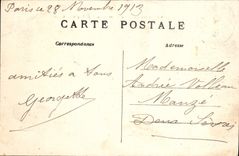 Paris ce 28 Novembre 1913
CARTE POSTALE
Correspondance
Adresse
amitiés à tous
Georgette
Mademoiselle
Andrée
Mauzé
Deux Sèvres